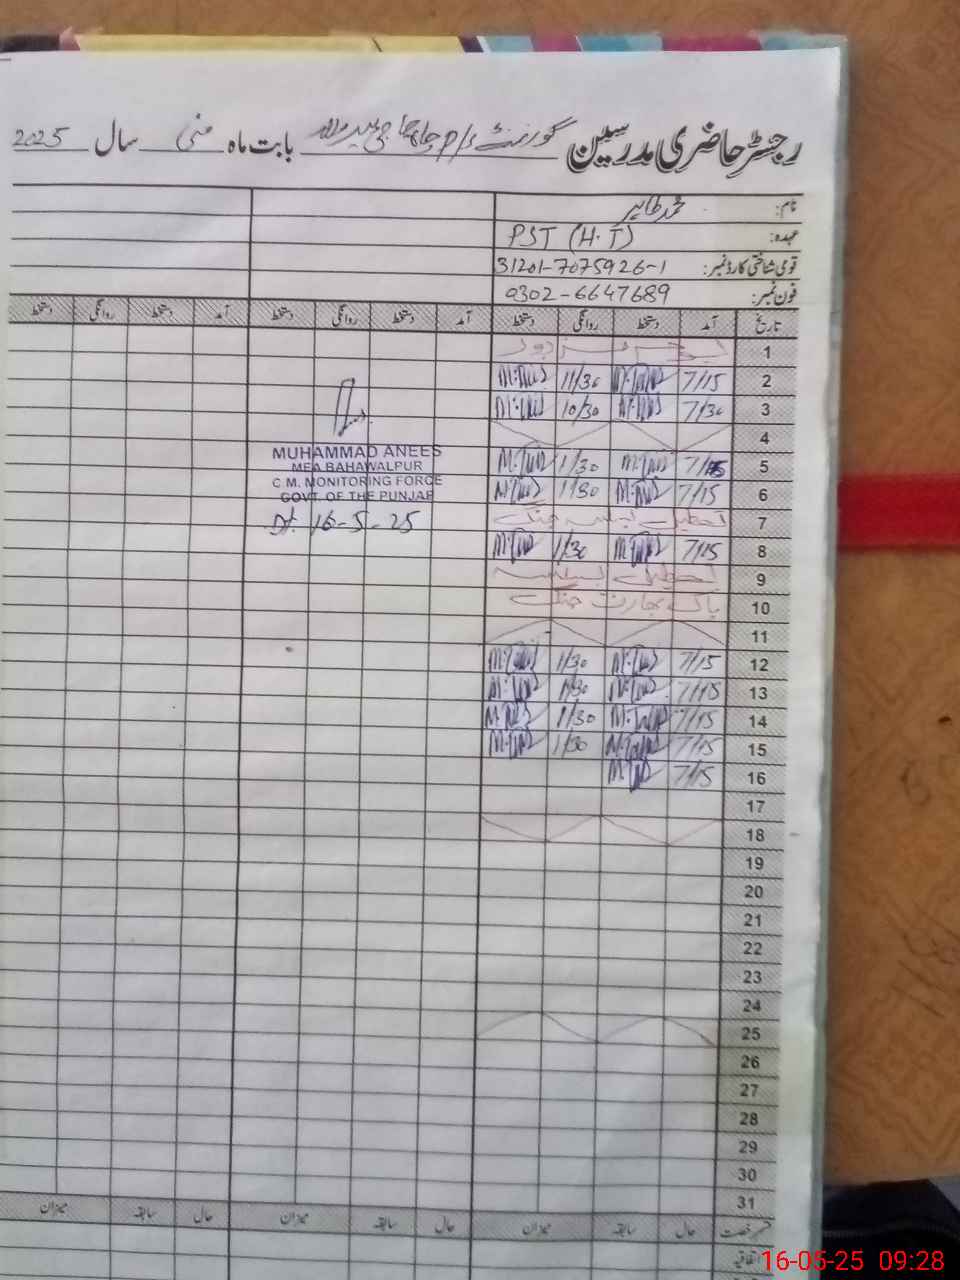 رجسٹر حاضری مدرسین گورنمنٹ p/s بابت ماہ مئی سال 2025
نام: محمد طاہر
عہدہ: PST (H.T)
قومی شناختی کارڈ نمبر: 31201-7075926-1
فون نمبر: 0302-6647689
تاریخ آمد دستخط روانگی دستخط آمد دستخط روانگی دستخط آمد دستخط روانگی دستخط
1
2 7/15 11/30
3 7/30 10/30
4
5 7/15 1/30
6 7/15 1/30
7 تعطیل بسلسلہ جنگ
8 7/15 1/30
9 تعطیل بسلسلہ
10 پاک بھارت جنگ
11
12 7/15 1/30
13 7/15 1/30
14 7/15 1/30
15 7/15 1/30
16 7/15
17
18
19
20
21
22
23
24
25
26
27
28
29
30
31
MUHAMMAD ANEES
MEA BAHAWALPUR
C M. MONITORING FORCE
GOVT. OF THE PUNJAB
Dt. 16-5-25
قسم رخصت حال سابقہ میزان حال سابقہ میزان حال سابقہ میزان
اتفاقیہ
16-05-25 09:28